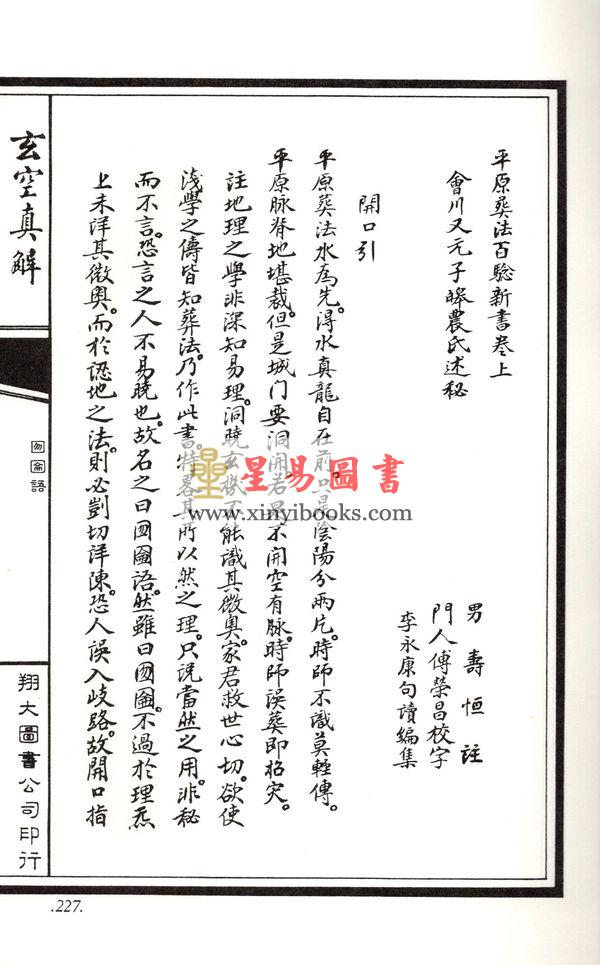 平原葬法百驗新書卷上
會川又元子皞農氏述秘
男壽恒註
門人傅榮昌校字
李永康句讀編集
開口引
平原葬法水為先。得水真龍自在前。只是陰陽分兩片。時師不識莫輕傳。
平原脉脊地堪裁。但是城门要洞開。若是不開空有脉。時師误葬即招灾。
註地理之學非深知易理。洞曉玄機不能識其微奥。家君救世心切。欲使
淺學之俦皆知葬法。乃作此書。特畧其所以然之理。只说當然之用。非秘
而不言。恐言之人不易曉也。故名之曰囫圇語。然雖曰囫圇。不過於理炁
上未详其微奥。而於認地之法。則必剴切详陳。恐人误入歧路。故開口指
玄空真解
囫圇語
翔大圖書公司印行
.227.
星易圖書
www.xinyibooks.com